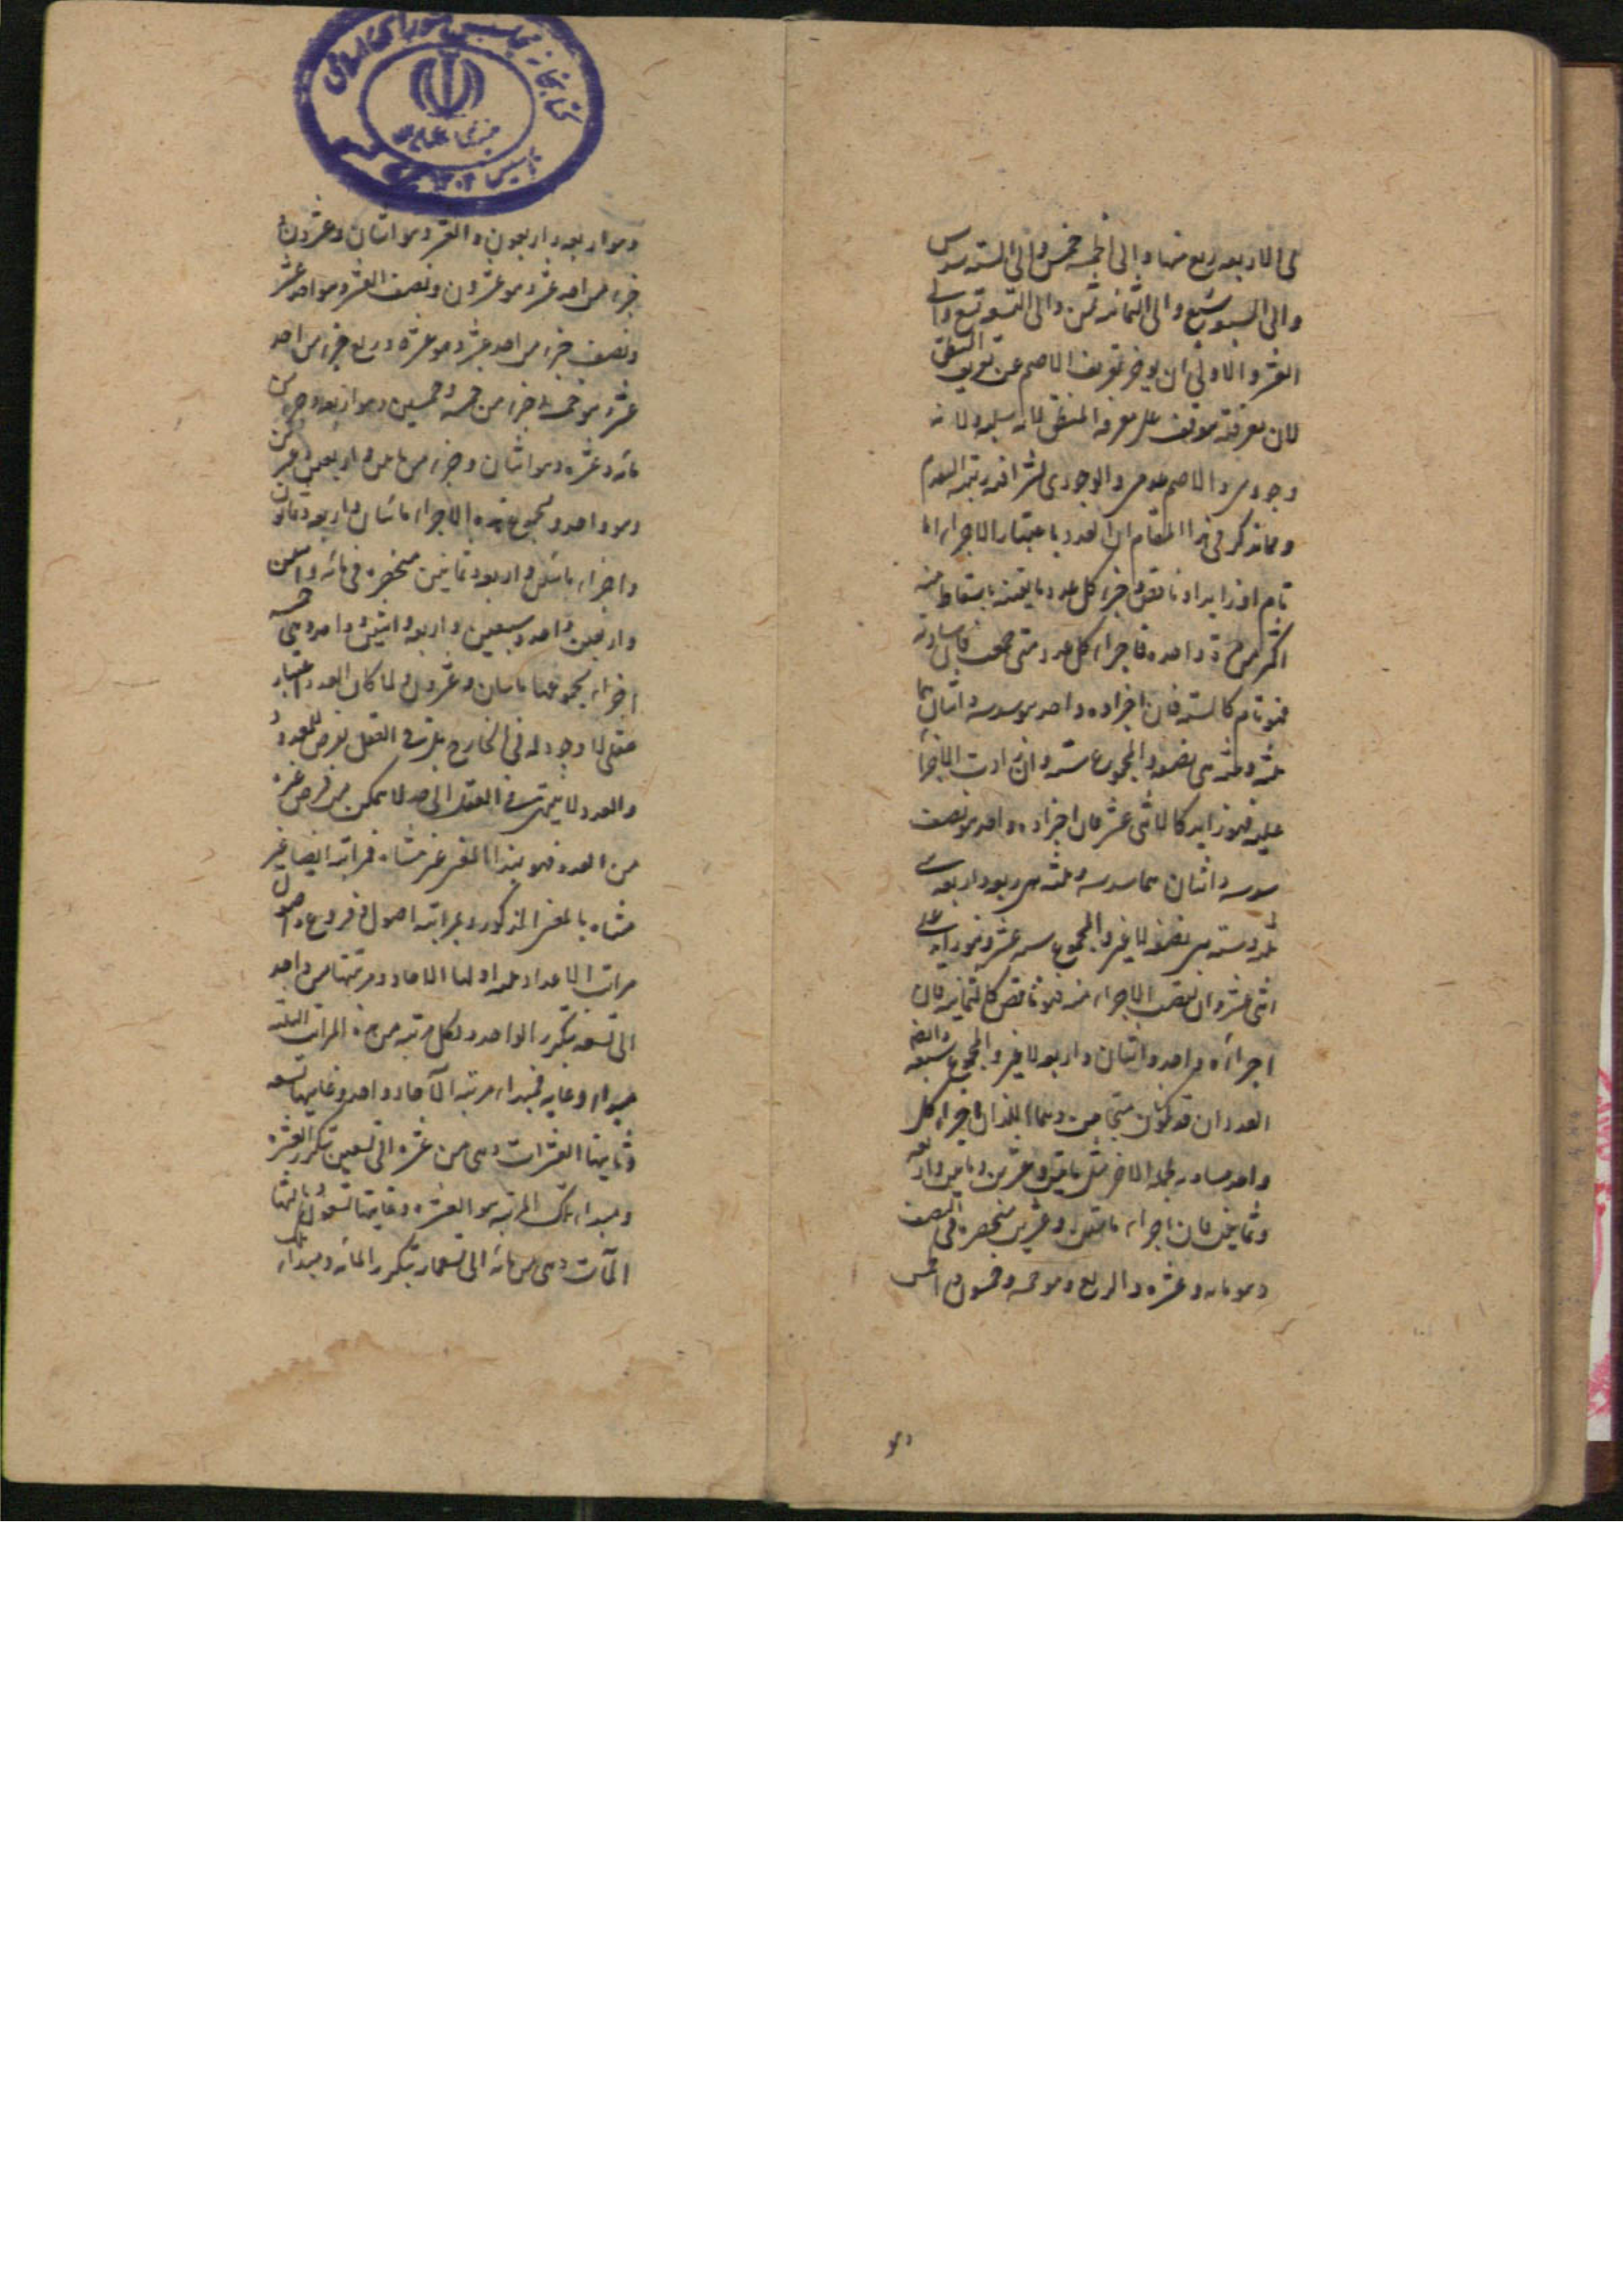 الى الاربعه ربع منها والى الخمسه خمس والى السته سدس
والى السبعه سبع والى الثمانيه ثمن والى التسعه تسع والى
العشره والاولى ان يوخر تعريف الاصم عن تعريف المنطق
لان معرفته موقوف على معرفه المنطق لانه سلبه ولانه
وجودى والاصم عدمى والوجودى اشرف
ومما يذكر فى هذا المقام ان العدد باعتبار الاجزاء اما
تام او زايد او ناقص وجزء كل عدد ما يفنيه باسقاطه منه
اكثر من مرة واحده فاجزاء كل عدد متى جمعت فان ساوته
فهو تام كالسته فان اجزاءه واحد هو سدسه واثنان هما
ثلثه وثلثه هى نصفه والمجموع سته وان زادت الاجزاء
عليه فهو زايد كالاثنى عشر فان اجزاءه واحد هو نصف
سدسه واثنان هما سدسه وثلثه هى ربعه واربعه هى
ثلثه وسته هى نصفه لا غير والمجموع سته عشر وهو زايد على
اثنى عشر وان نقصت الاجزاء منه فهو ناقص كالثمانيه فان
اجزاءه واحد واثنان واربعه لا غير والمجموع سبعه وايضا
العددان قد يكونان متحابين وهما اللذان اجزاء كل
واحد مساويه لجمله الاخر مثل مايتين وعشرين ومايتين واربعه
وثمانين فان اجزاء مايتين وعشرين منحصره فى النصف
وهو مائه وعشره والربع وهو خمسه وخمسون والخمس
وهو
وهو اربعه واربعون والعشر وهو اثنان وعشرون و
جزء من احد عشر وهو عشرون ونصف العشر وهو احد عشر
ونصف جزء من احد عشر وهو عشره وربع جزء من احد
عشر هو خمسه وجزء من خمسه وخمسين وهو اربعه وجزء من
مائه وعشره وهو اثنان وجزء من مايتين وعشرين
وهو واحد ومجموع هذه الاجزاء مائتان واربعه وثمانون
واجزاء مائتين واربعه وثمانين منحصره فى مائه واثنين
واربعين واحد وسبعين واربعه واثنين وواحد وهى خمسه
اجزاء مجموعها مايتان وعشرون ولما كان العدد اعتبار
عقلى لا وجود له فى الخارج بل فى العقل يعرض للمعدود
والعدد لا ينتهى فى العقل الى حد لا يمكن فرض غيره
من العدد فهو بهذا المعنى غير متناه فمراتبه ايضا غير
متناه بالمعنى المذكور ولمراتبه اصول وفروع واصول
مراتب الاعداد ثلثه اولها الاحاد ومرتبتها من واحد
الى تسعه بتكرر الواحد ولكل مرتبه من هذه المراتب الثلثه
مبداء وغايه فمبداء مرتبه الآحاد واحد وغايتها تسعه
وثانيتها العشرات وهى من عشره الى تسعين بتكرر العشره
ومبداء تلك المرتبه هو العشره وغايتها تسعون وثالثتها
المآت وهى من مائه الى تسعمائه بتكرر المائه ومبداء تلك